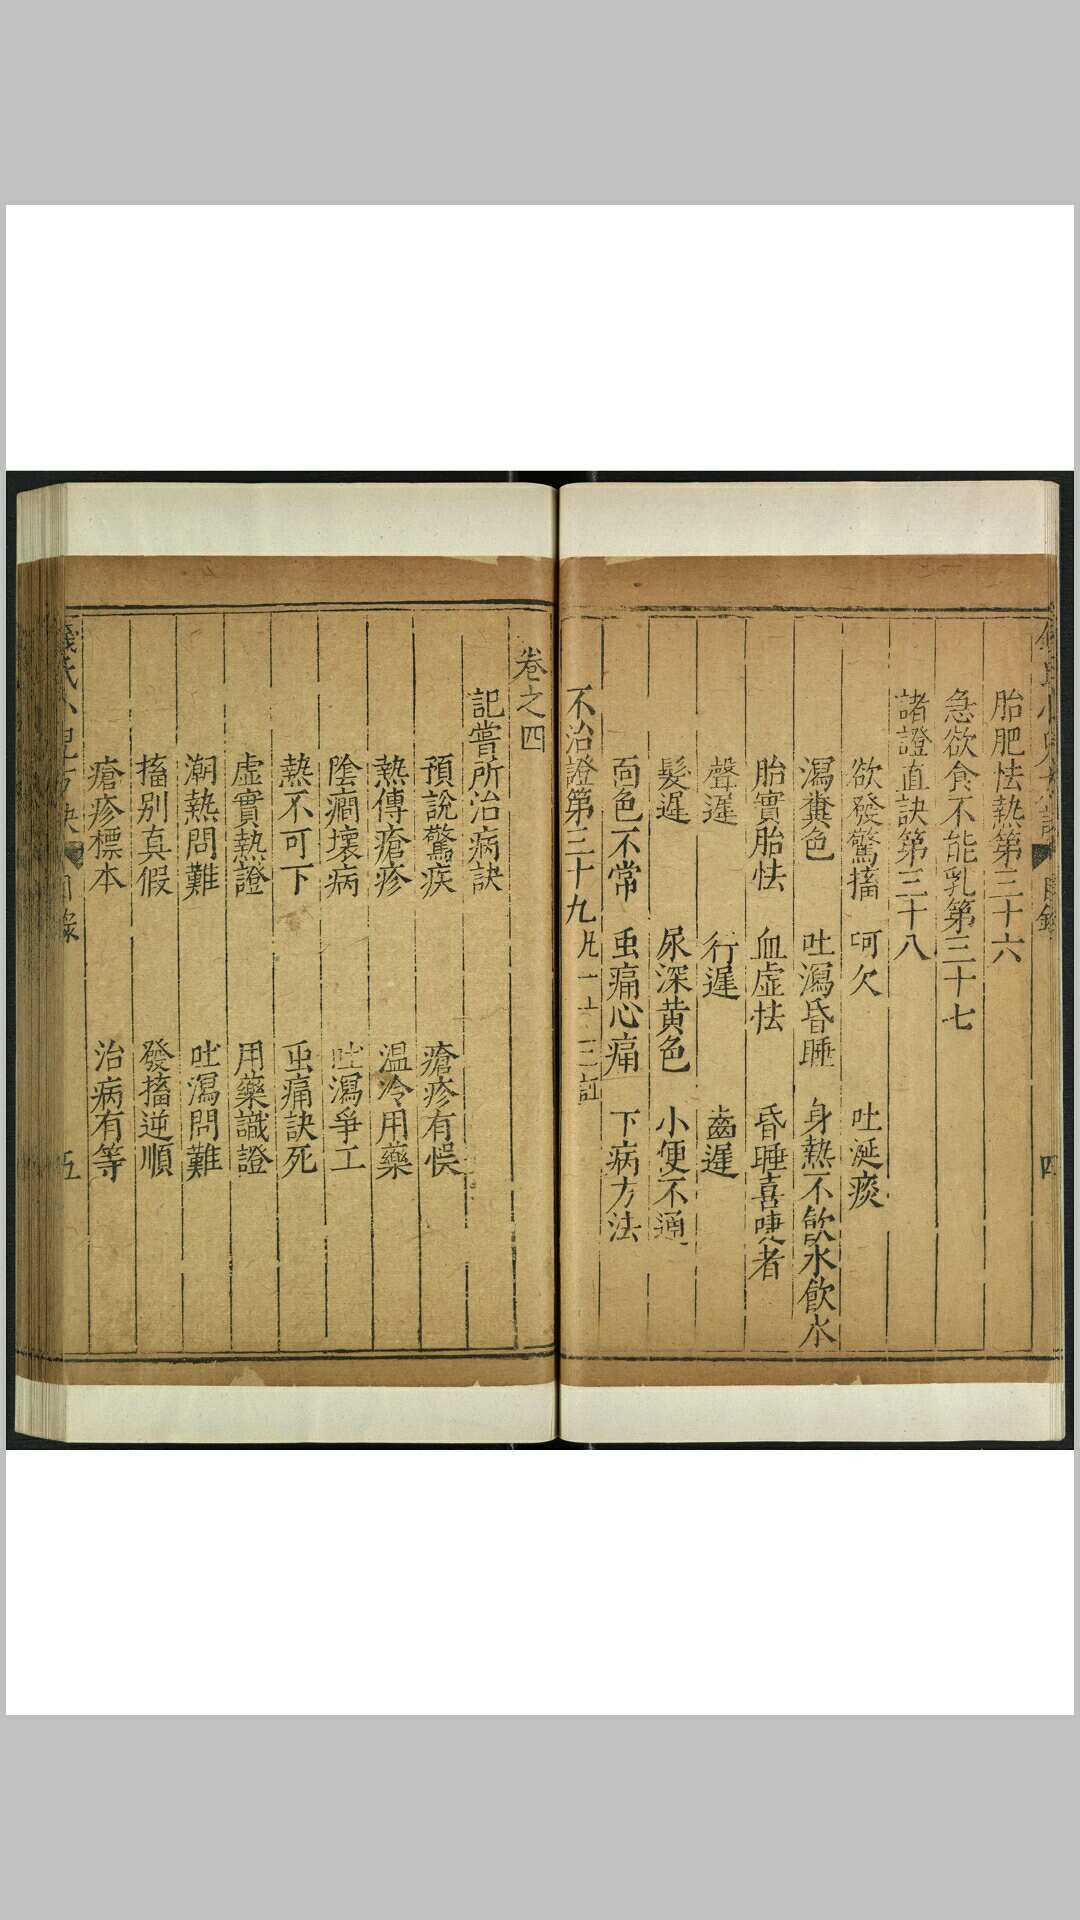 胎肥怯熱第三十六
急欲食不能乳第三十七
諸證直訣第三十八
欲發驚搐 呵欠 吐涎痰
瀉糞色 吐瀉昏睡 身熱不飲水飲水
胎實胎怯 血虛怯 昏睡喜嚏者
聲遲 行遲 齒遲
髮遲 尿深黃色 小便不通
面色不常 虫痛心痛 下病方法
不治證第三十九
四
卷之四
記嘗所治病訣
預說驚疾 瘡疹有悮
熱傳瘡疹 温冷用藥
陰癎壞病 吐瀉爭工
熱不可下 虫痛訣死
虛實熱證 用藥識證
潮熱問難 吐瀉問難
搐别真假 發搐逆順
瘡疹標本 治病有等
五